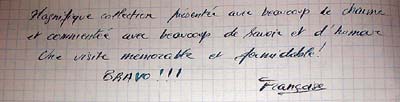 Magnifique collection présentée avec beaucoup de charme
et commentée avec beaucoup de savoir et d'humour
Une visite mémorable et formidable!
BRAVO!!!
Françoise